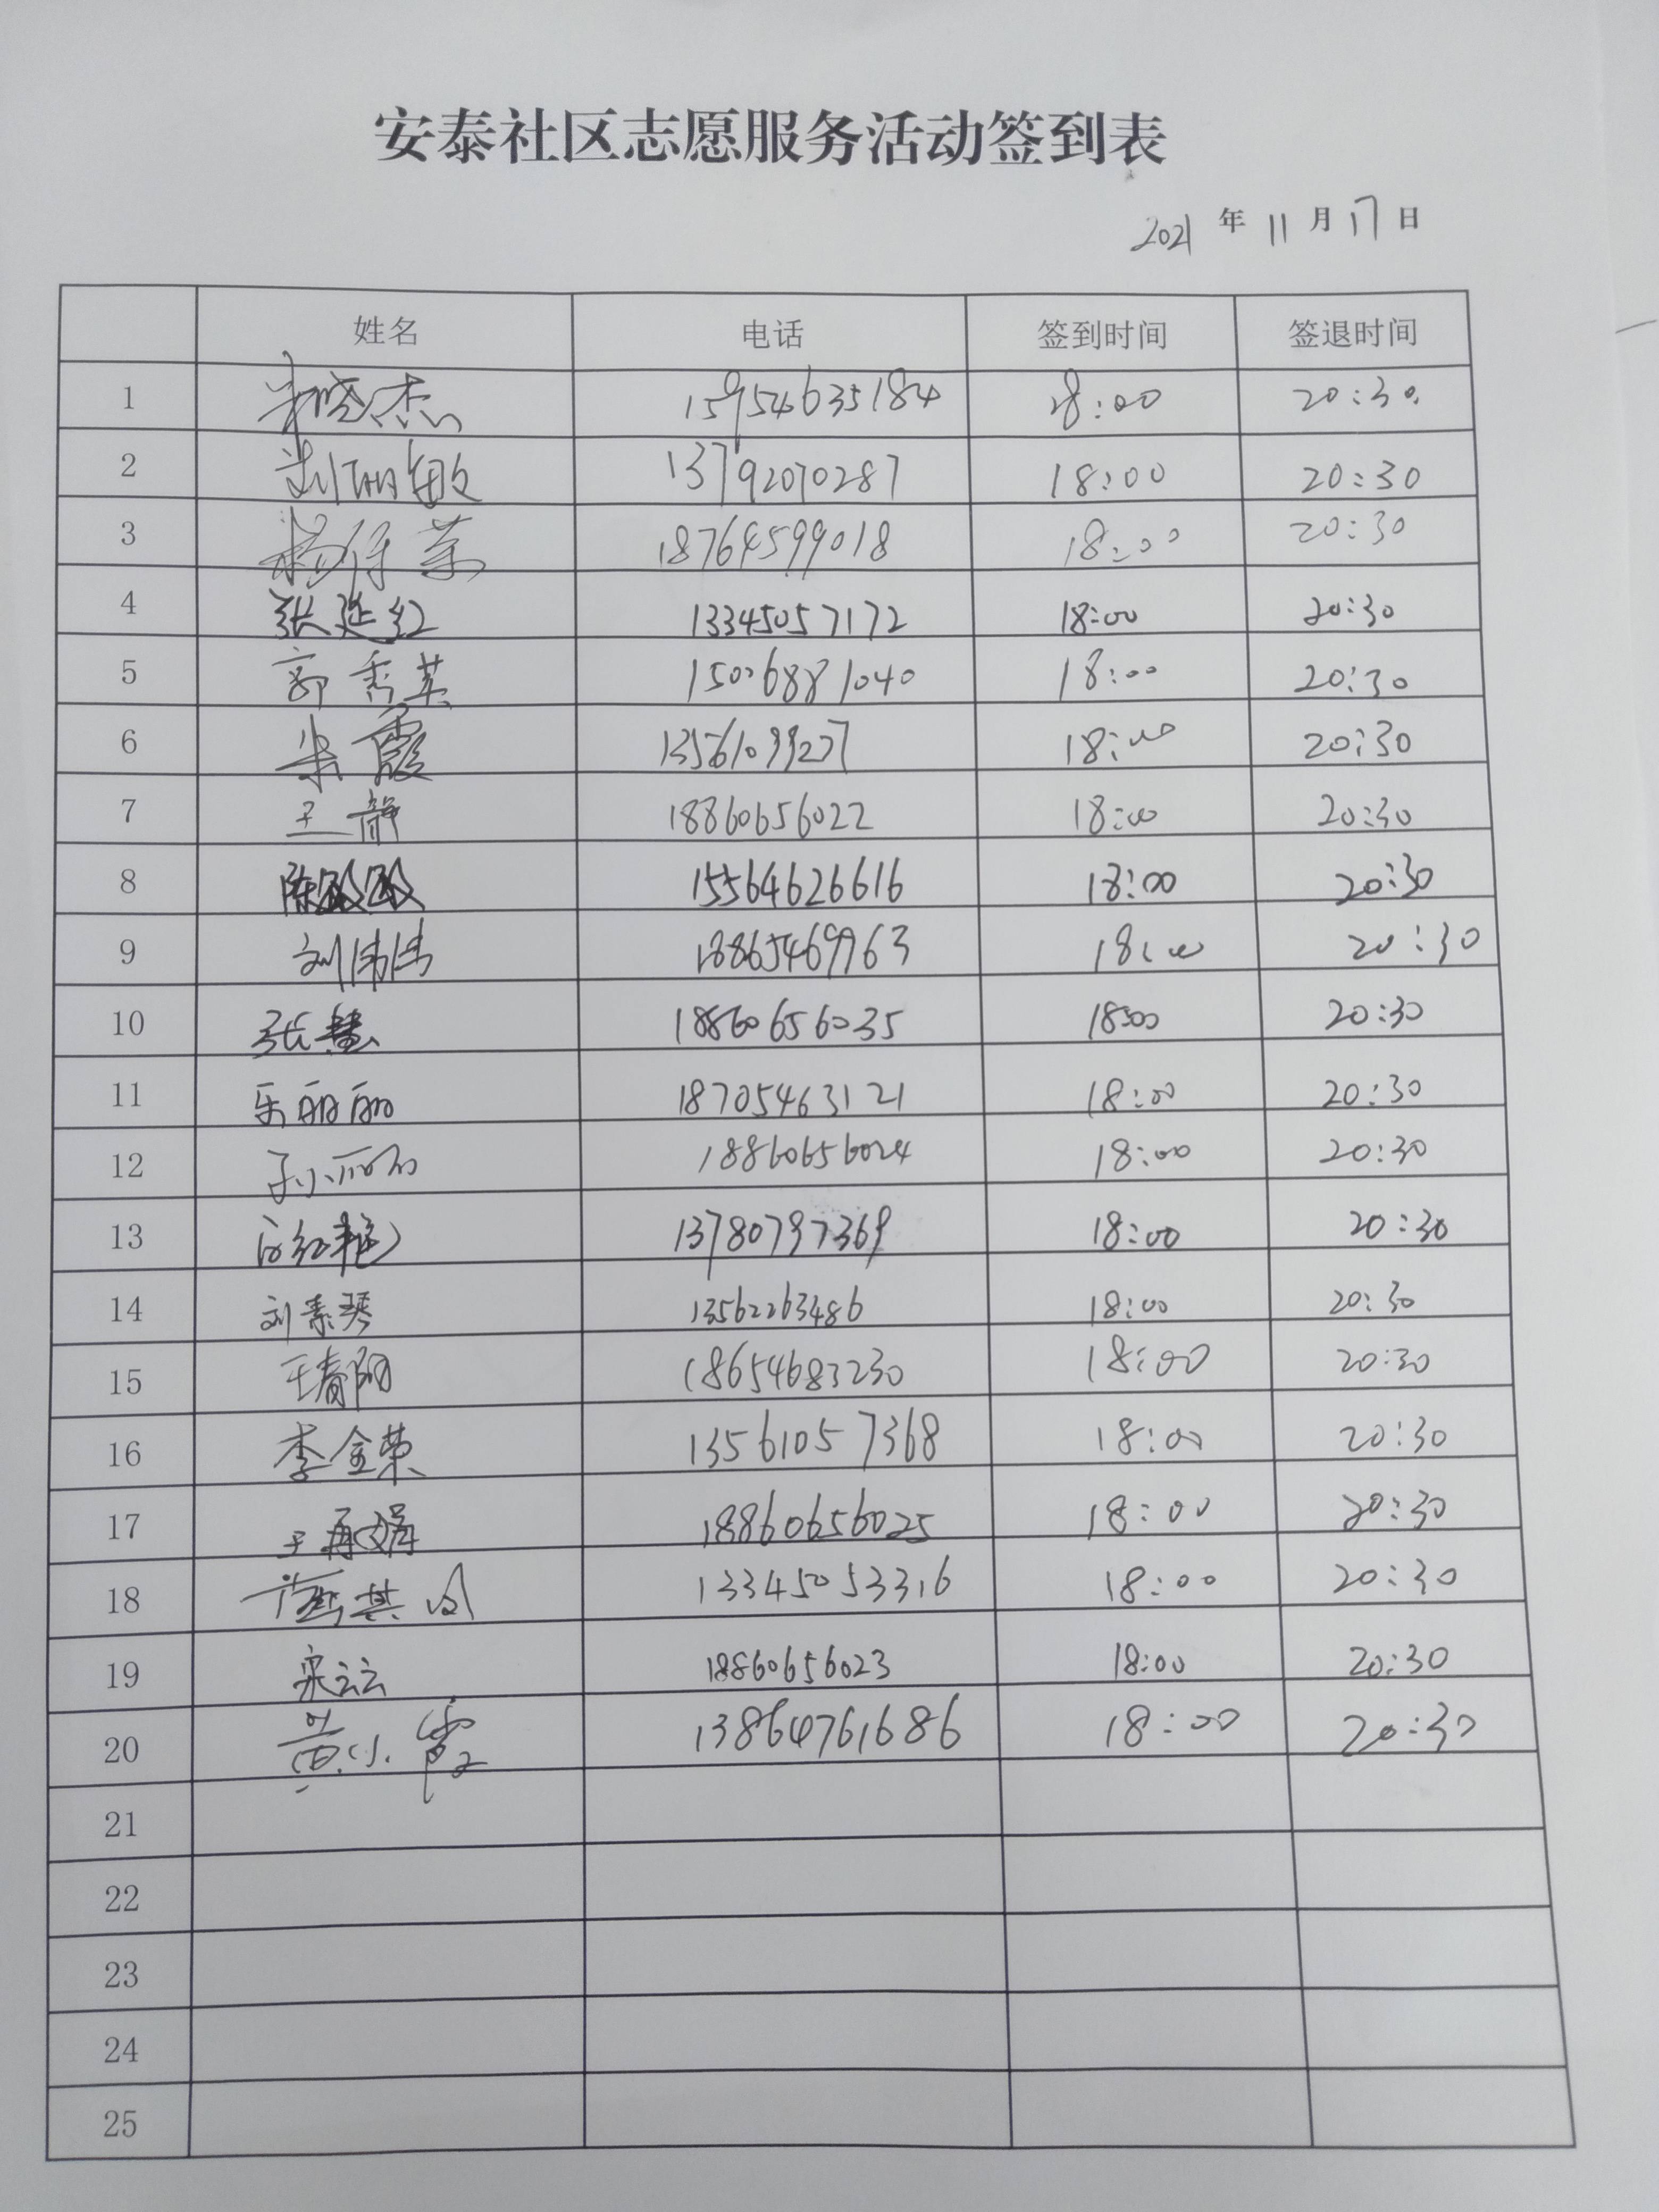 安泰社区志愿服务活动签到表
2021 年 11 月 17 日
姓名 电话 签到时间 签退时间
1 朱晓杰 15954635184 18:00 20:30
2 刘丽敏 13792070287 18:00 20:30
3 18764599018 18:00 20:30
4 张延红 13345057172 18:00 20:30
5 郭秀英 15026881040 18:00 20:30
6 朱霞 13561099277 18:00 20:30
7 王静 18860656022 18:00 20:30
8 陈殴殴 15564626616 18:00 20:30
9 刘伟伟 18865469963 18:00 20:30
10 张慧 18860656035 18:00 20:30
11 乐丽丽 18705463121 18:00 20:30
12 孙小丽 18860656024 18:00 20:30
13 13780797369 18:00 20:30
14 刘素琴 13562263486 18:00 20:30
15 王春阳 18654683230 18:00 20:30
16 李金荣 13561057368 18:00 20:30
17 18860656025 18:00 20:30
18 13345053316 18:00 20:30
19 宋云云 18860656023 18:00 20:30
20 黄小霞 13864761686 18:00 20:30
21
22
23
24
25